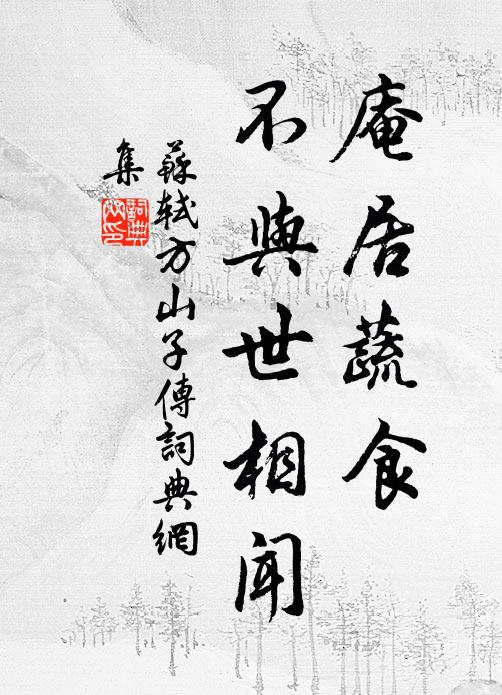 庵居蔬食
不與世相聞
蘇軾方山子傳詞典網
集
詞典